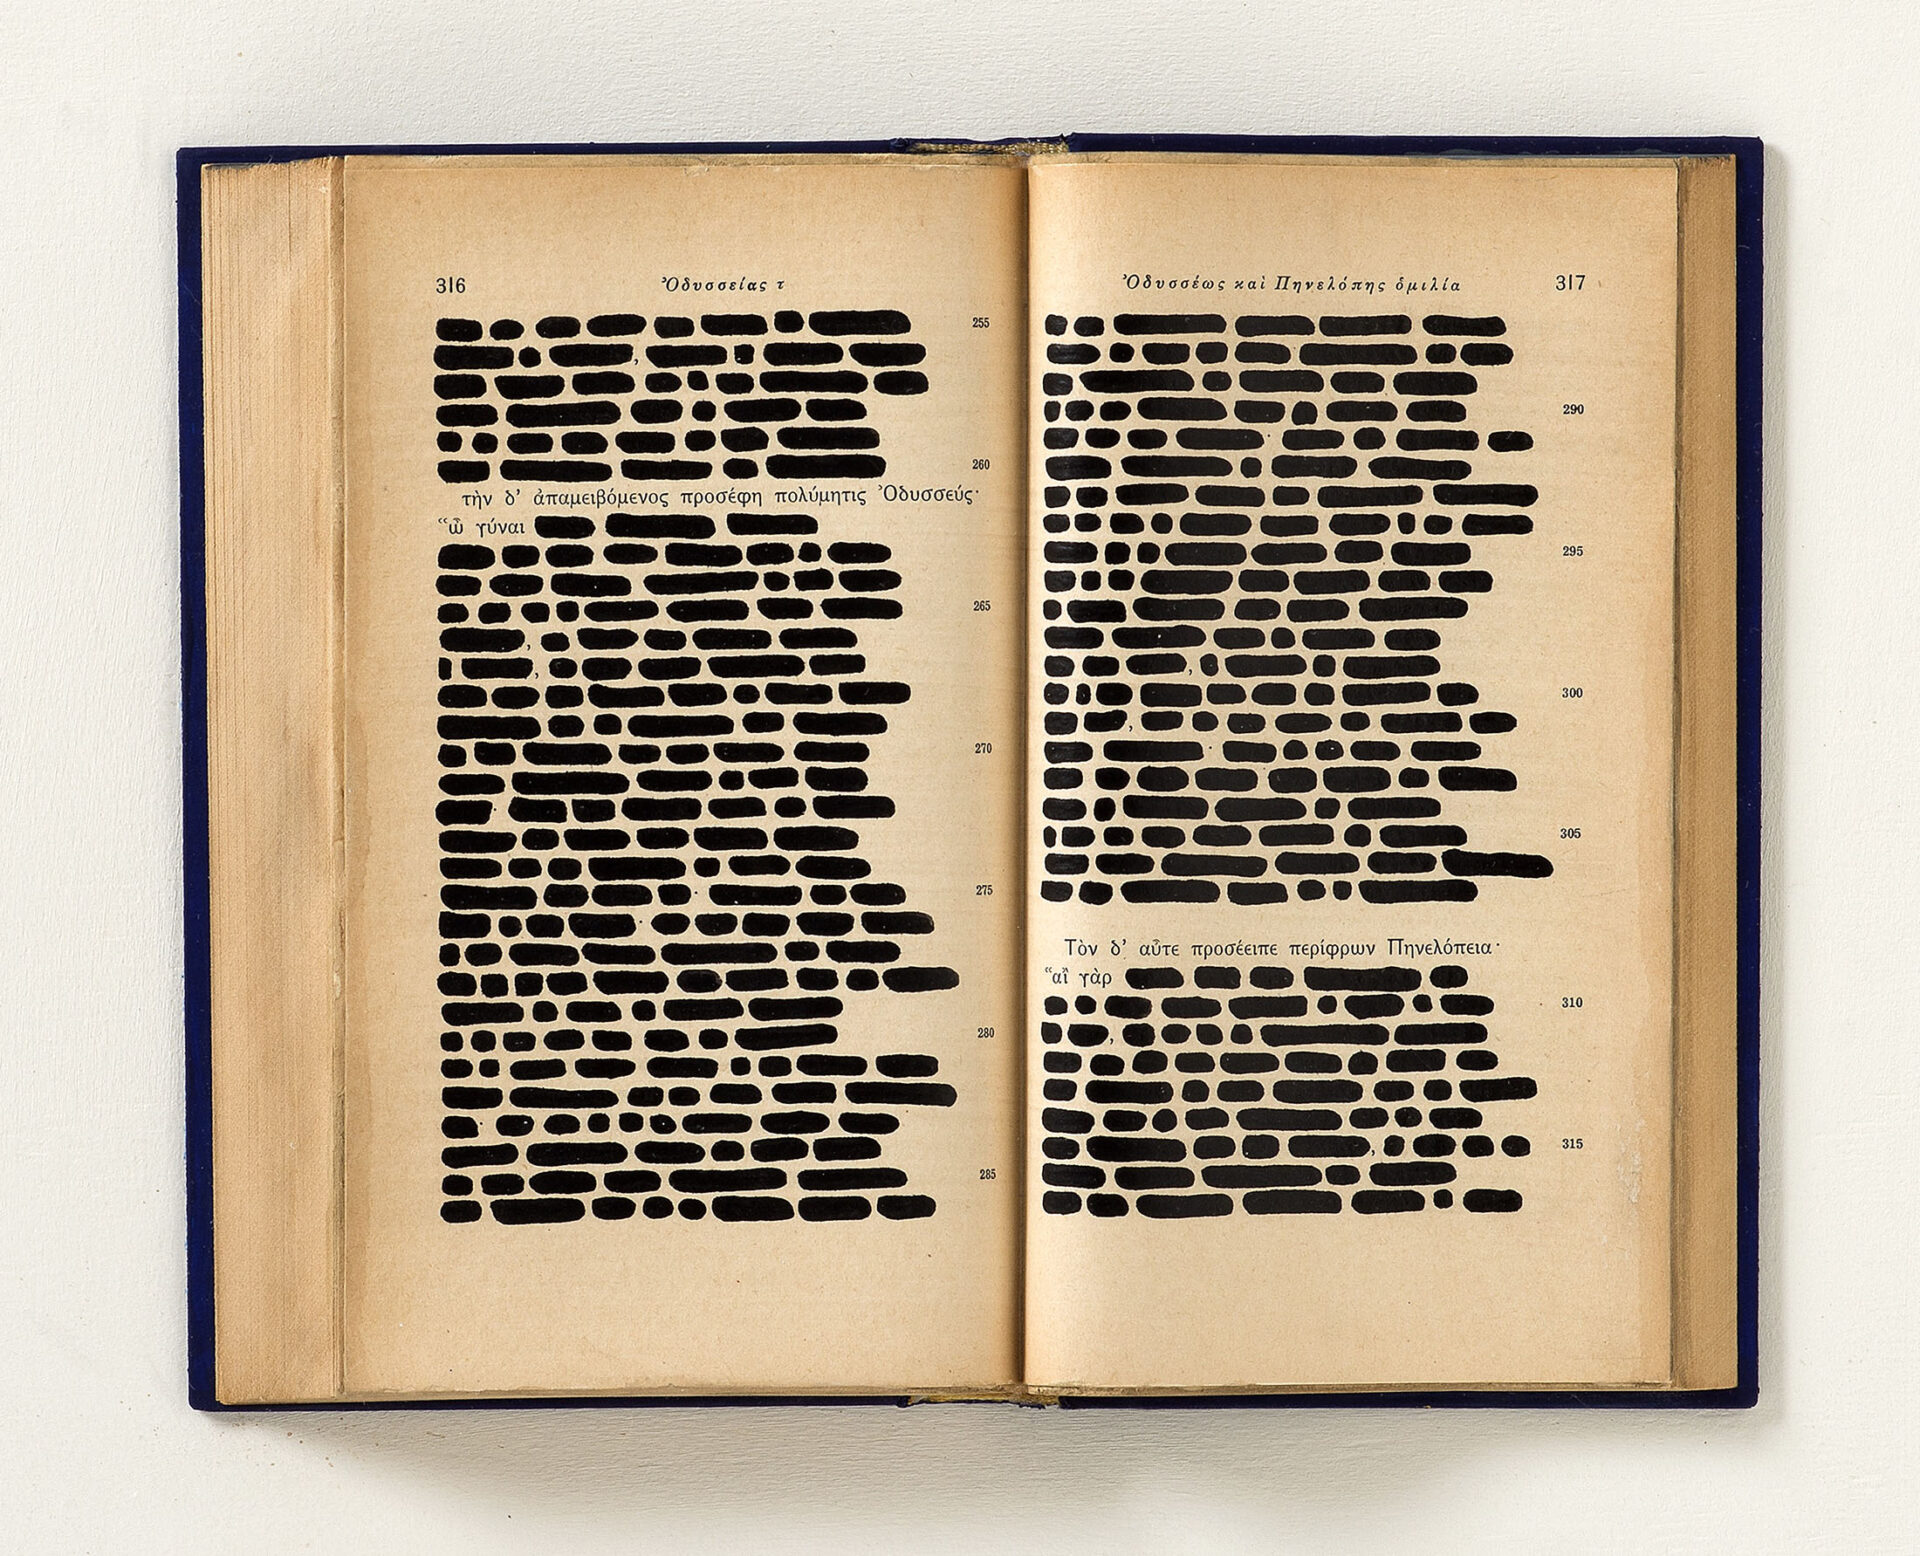 316 Ὀδυσσείας τ
255
260
τὴν δ’ ἀπαμειβόμενος προσέφη πολύμητις Ὀδυσσεύς·
“ὦ γύναι
265
270
275
280
285
Ὀδυσσέως καὶ Πηνελόπης ὁμιλία 317
290
295
300
305
Τὸν δ’ αὖτε προσέειπε περίφρων Πηνελόπεια·
“αἲ γὰρ
310
315